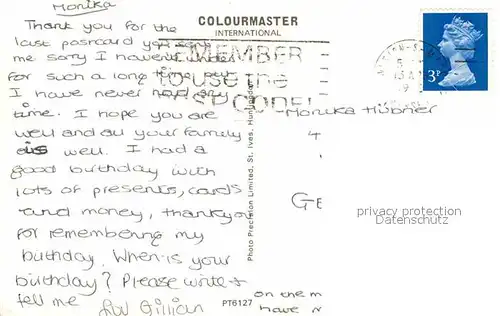 Monika
Thank you for the
last postcard you gave
me sorry I haven't
for such a long time but
I have never had any
time. I hope you are
well and all your family
as well. I had a
good birthday with
lots of presents, cards
and money, thankyou
for remembering my
buthday. When is your
birthday? Please write +
tell me luv Gillian
COLOURMASTER
INTERNATIONAL
REMEMBER
to use the
POSTCODE
3P
Monika Hübner
GE
on the m
have n
Photo Precision Limited, St. Ives, Huntingdon
PT6127
privacy protection
Datenschutz